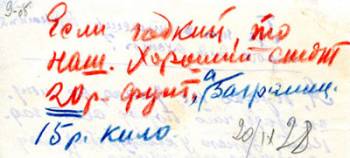 9-08
Если гадкий, то
наш. Хороший стоит
20 р. фунт, а Заграниц.
15 р. кило
20/IX 28